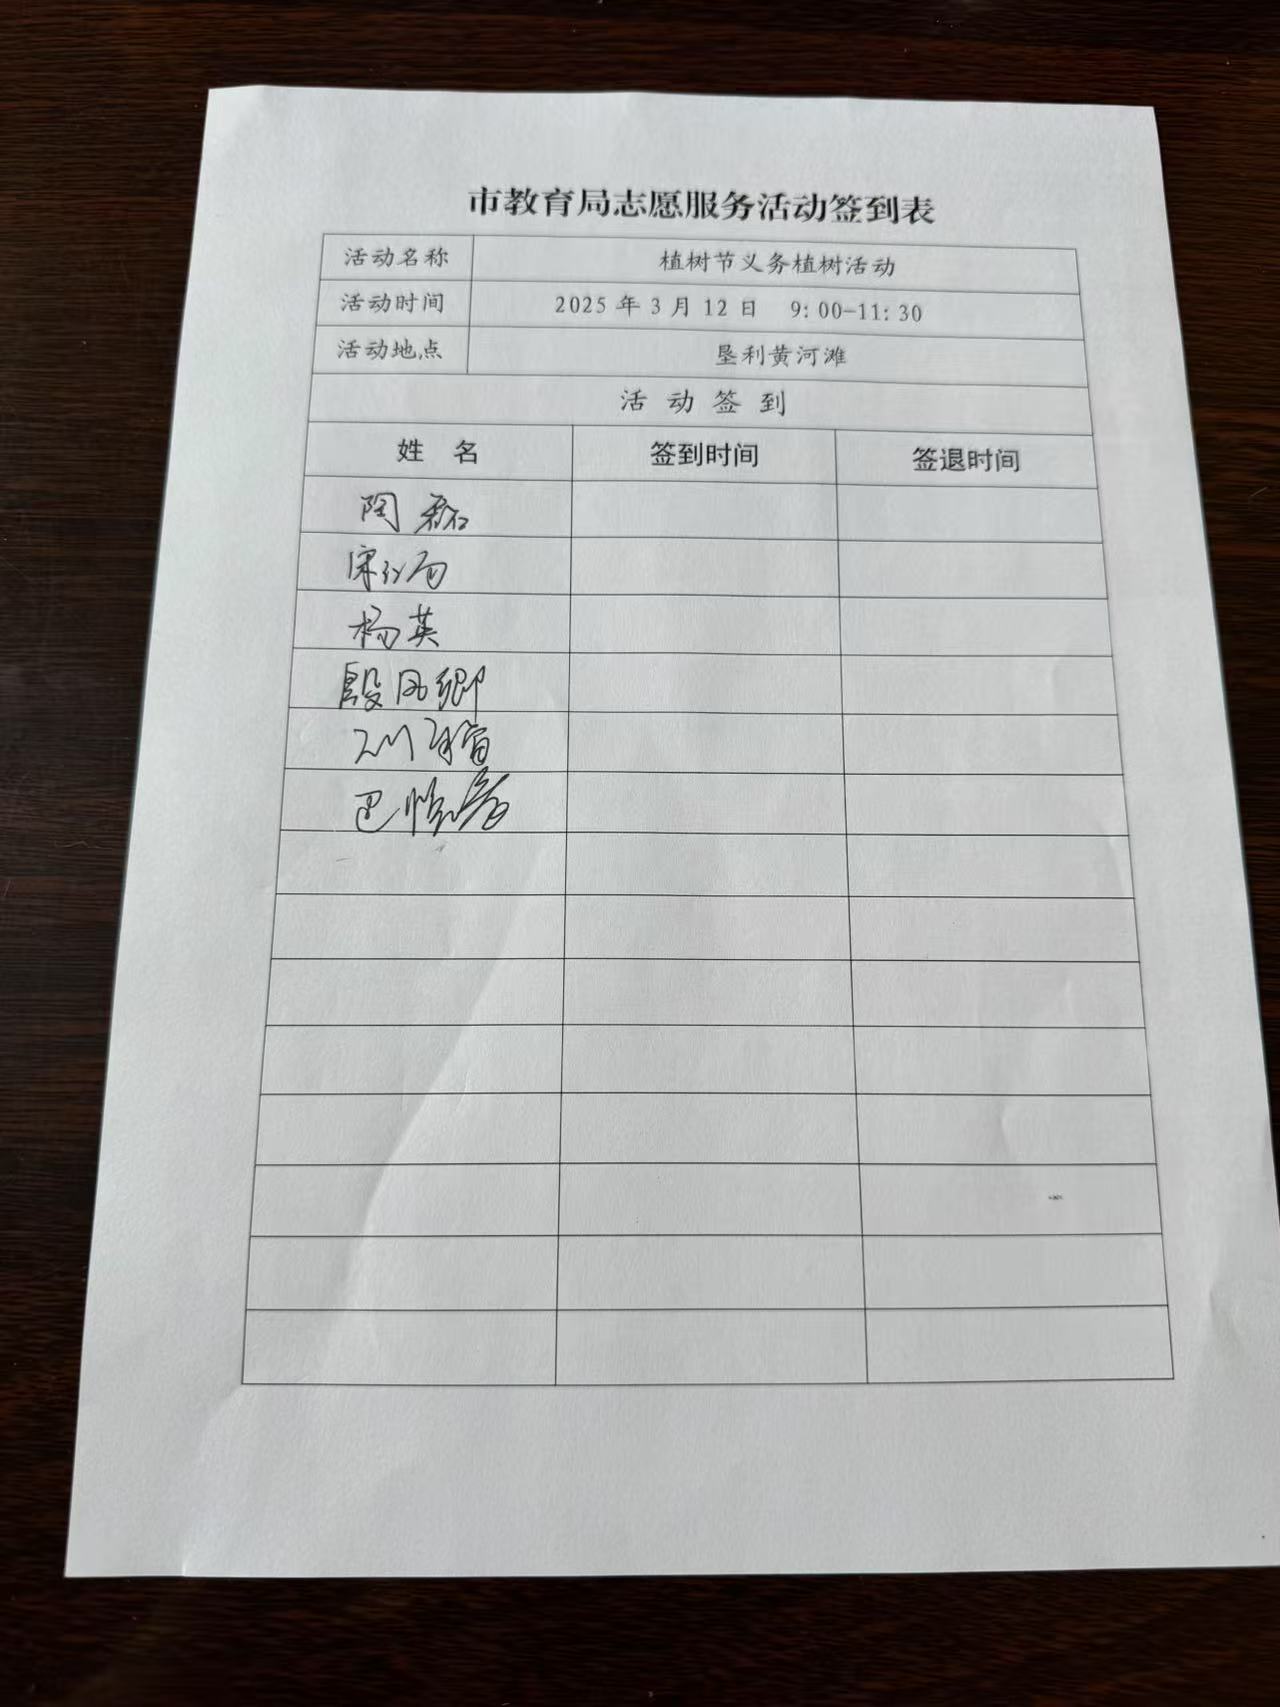 市教育局志愿服务活动签到表
活动名称 植树节义务植树活动
活动时间 2025年3月12日 9:00-11:30
活动地点 垦利黄河滩
活动签到
姓名 签到时间 签退时间
陶磊
宋红
杨英
殷凤卿
巴